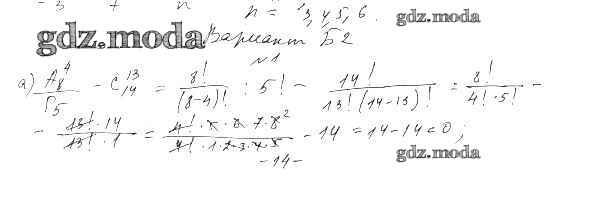 - 3 7 n n = 3, 4, 5, 6.
gdz.moda
gdz.moda Вариант Б2
№1
а) A₈⁴ / P₅ - C₁₄¹³ = 8! / (8-4)! : 5! - 14! / 13! (14-13)! = 8! / 4! · 5! -
- 13! · 14 / 13! · 1 = 4! · 5 · 6 · 7 · 8² / 4! · 1 · 2 · 3 · 4 · 5 - 14 = 14 - 14 = 0;
gdz.moda
-14-